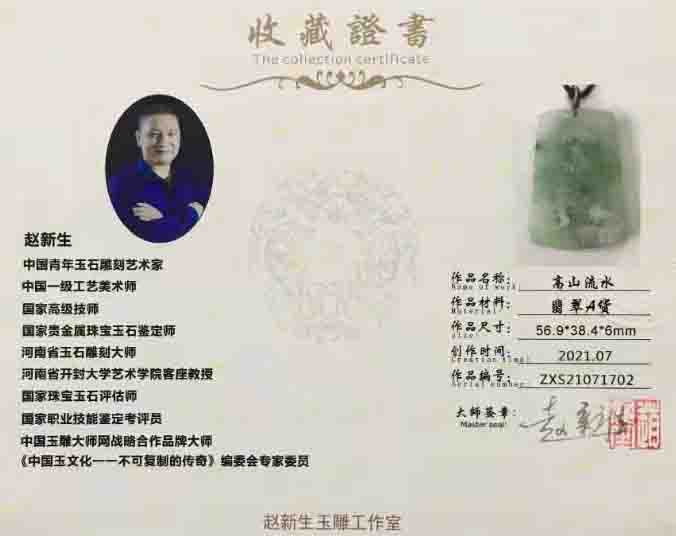 收藏證書
The collection certificate
赵新生
中国青年玉石雕刻艺术家
中国一级工艺美术师
国家高级技师
国家贵金属珠宝玉石鉴定师
河南省玉石雕刻大师
河南省开封大学艺术学院客座教授
国家珠宝玉石评估师
国家职业技能鉴定考评员
中国玉雕大师网战略合作品牌大师
《中国玉文化一一不可复制的传奇》编委会专家委员
作品名称: 高山流水
Name of work
作品材料: 翡翠A货
Material
作品尺寸: 56.9*38.4*6mm
size
创作时间: 2021.07
Creation time:
作品编号: ZXS21071702
Serial number
大师签章: 赵新生
Master seal:
赵新生玉雕工作室